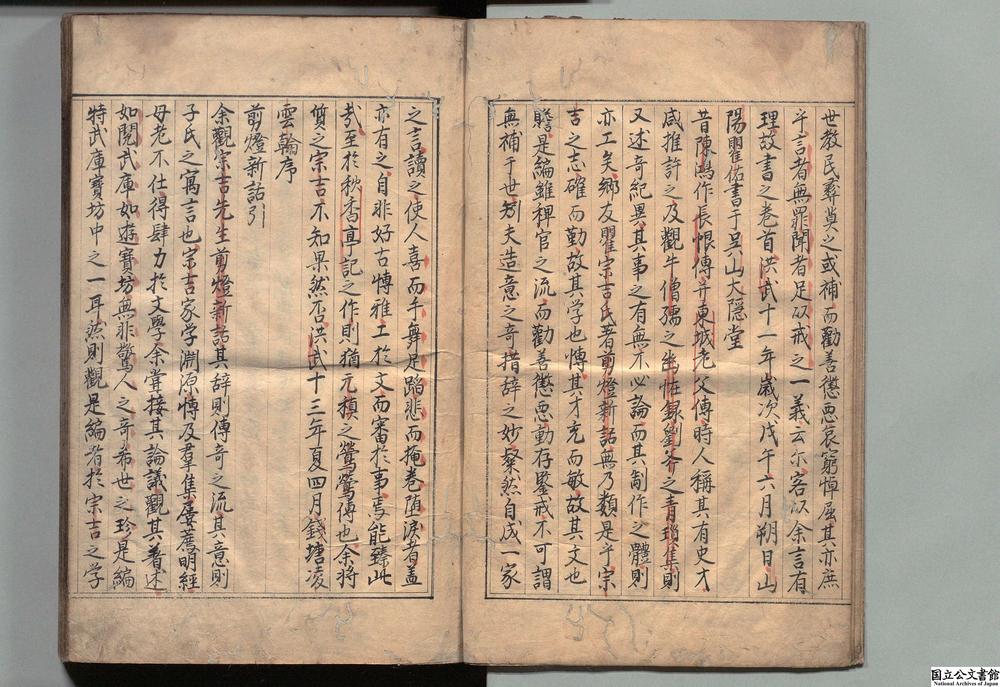 世教民彝莫之或補而勸善懲惡哀窮悼屈其亦庶
乎言者無罪聞者足以戒之一義云尓客以余言有
理故書之卷首洪武十一年歲次戊午六月朔日山
陽瞿佑書于吴山大隱堂
昔陳鴻作長恨傳并東城老父傳時人稱其有史才
咸推許之及觀牛僧孺之幽恠録劉斧之青瑣集則
又述奇紀異其事之有無不必論而其制作之體則
亦工矣鄉友瞿宗吉氏著剪燈新話無乃類是乎宗
吉之志確而勤故其学也博其才充而敏故其文也
贍是編雖稗官之流而勸善懲惡動存鑒戒不可謂
無補于世矧夫造意之奇措辞之妙粲然自成一家
之言讀之使人喜而手舞足蹈悲而掩卷堕淚者盖
亦有之自非好古博雅工於文而審於事焉能臻此
哉至於秋香亭記之作則猶元稹之鶯鶯傳也余将
質之宗吉不知果然否洪武十三年夏四月錢塘凌
雲翰序
剪燈新話引
余觀宗吉先生剪燈新話其辞則傳奇之流其意則
子氏之寓言也宗吉家学淵源博及羣集屡薦明經
母老不仕得肆力於文學余嘗接其論議觀其著述
如開武庫如遊寶坊無非驚人之奇希世之珍是編
特武庫寶坊中之一耳然則觀是編者於宗吉之学
国立公文書館
National Archives of Japan